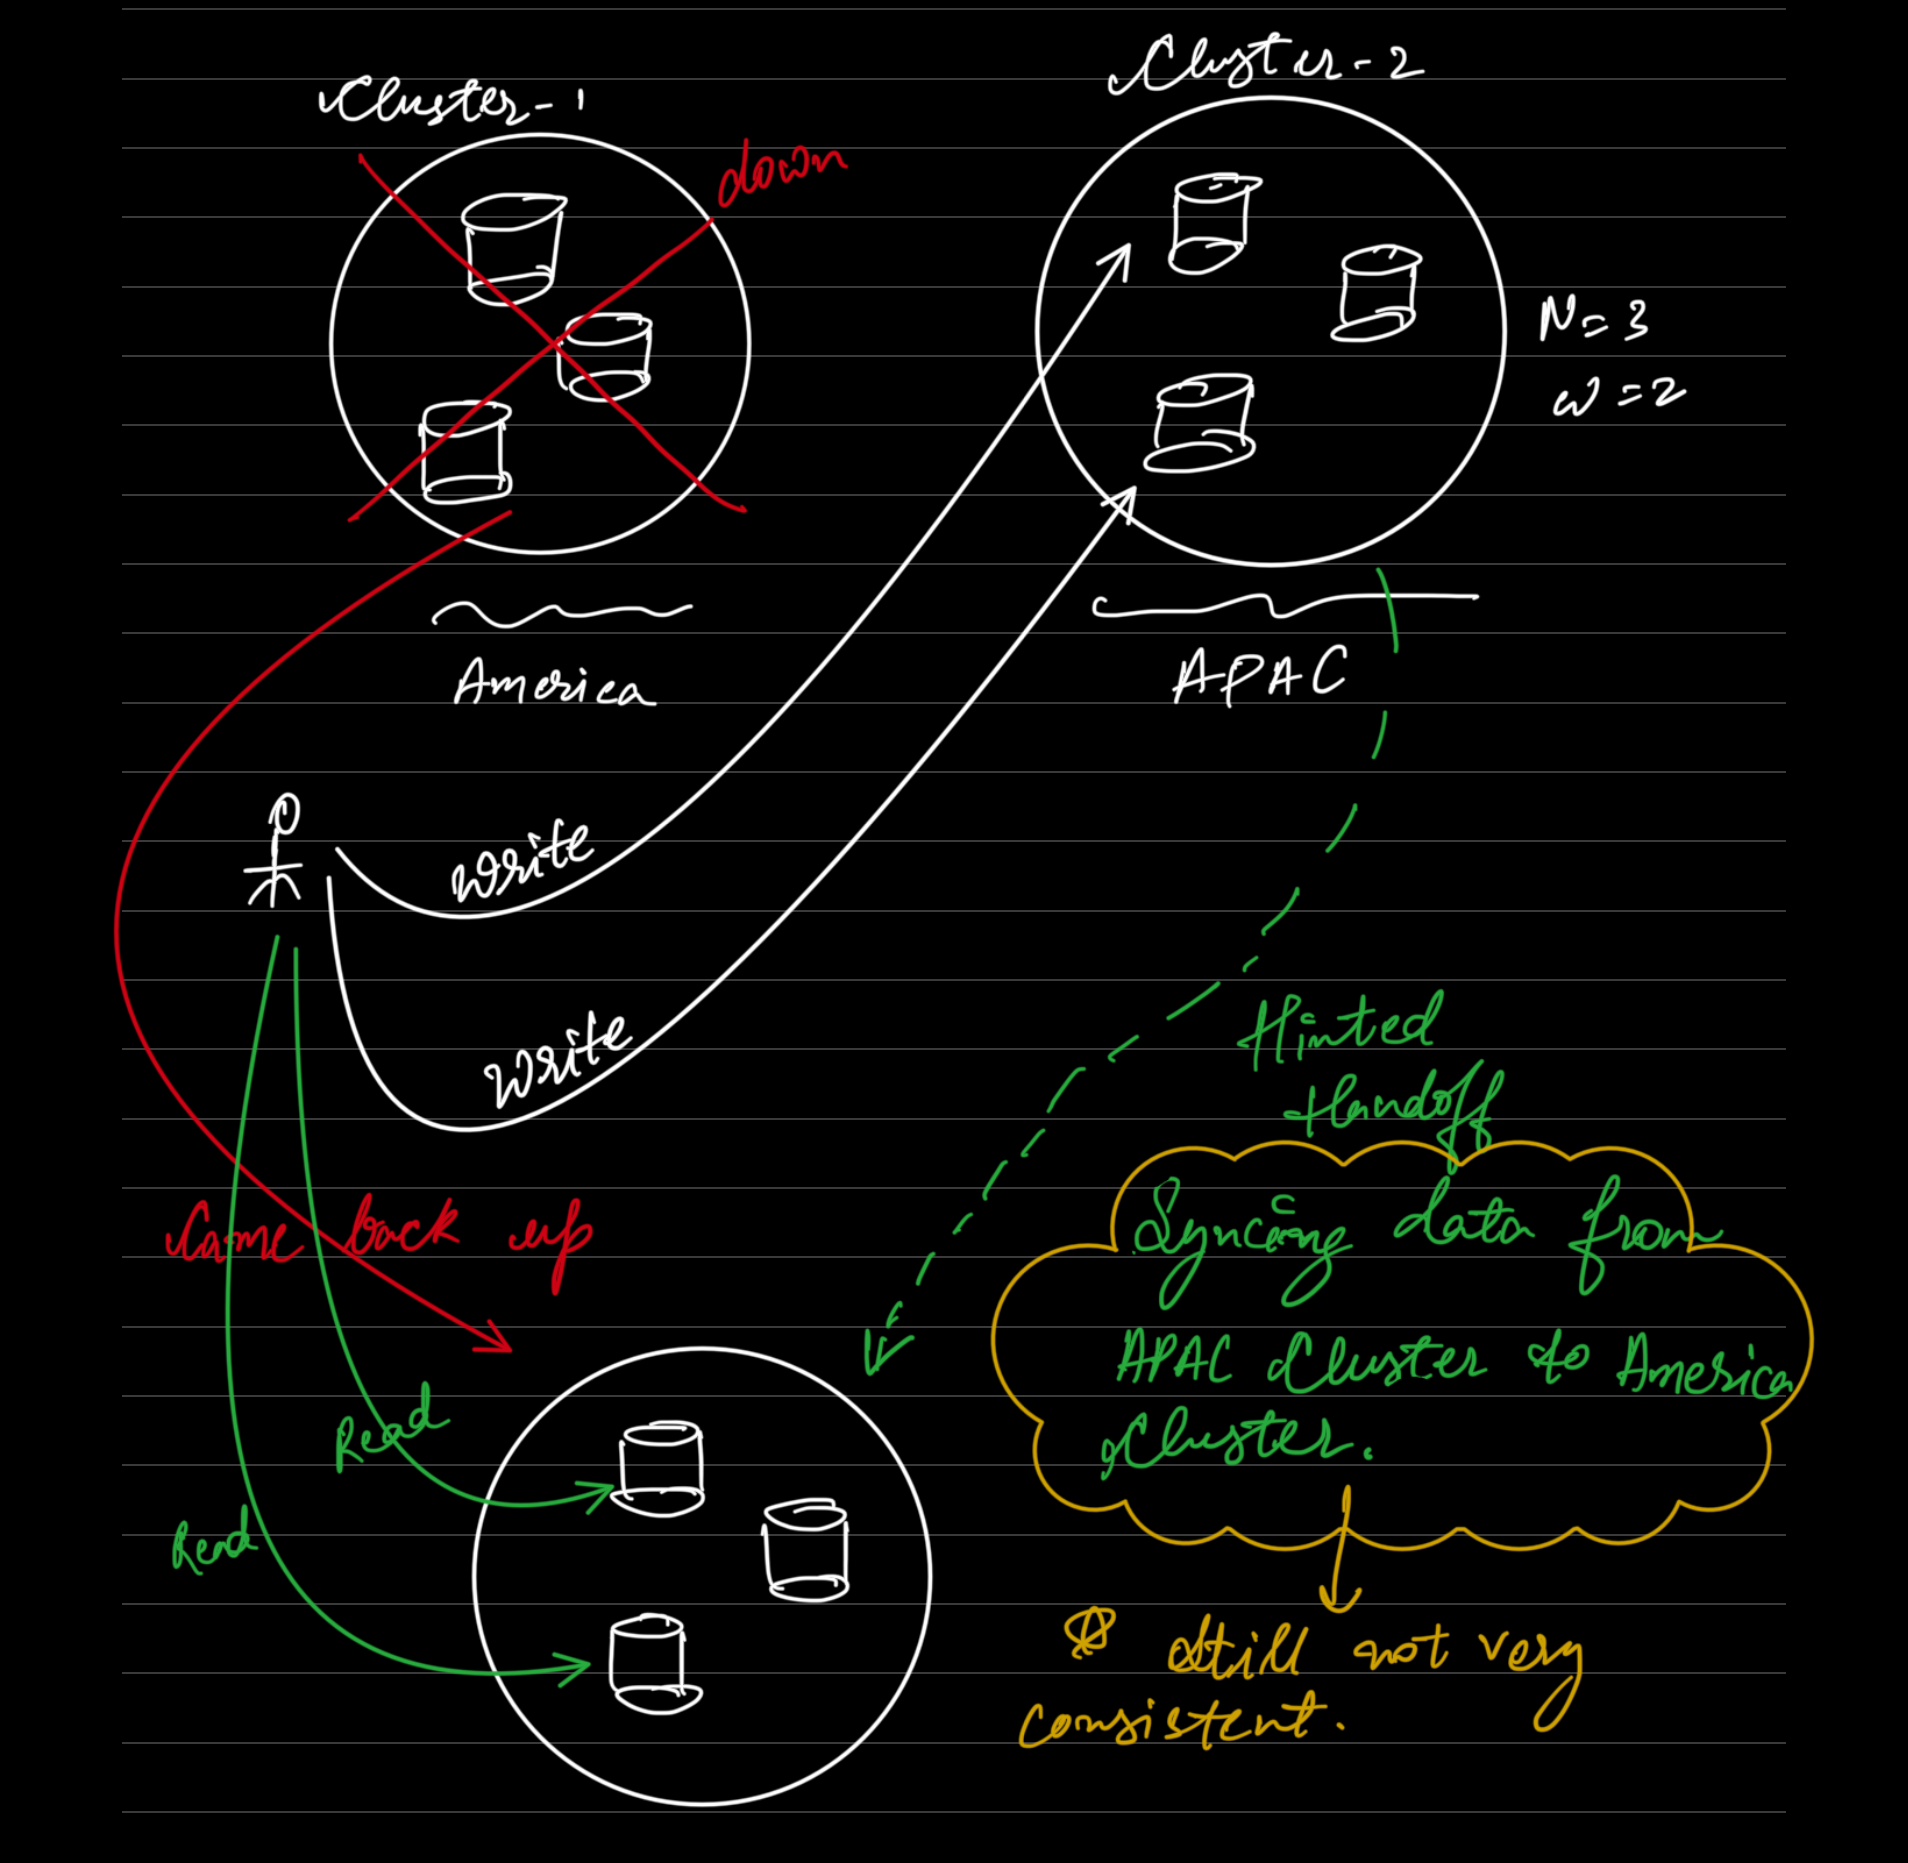 Cluster-1
Cluster-2
down
N=3
W=2
America
APAC
Write
Write
Hinted
Handoff
Came back up
Syncing data from
APAC Cluster to America
Cluster.
Read
Read
Still not very
consistent.